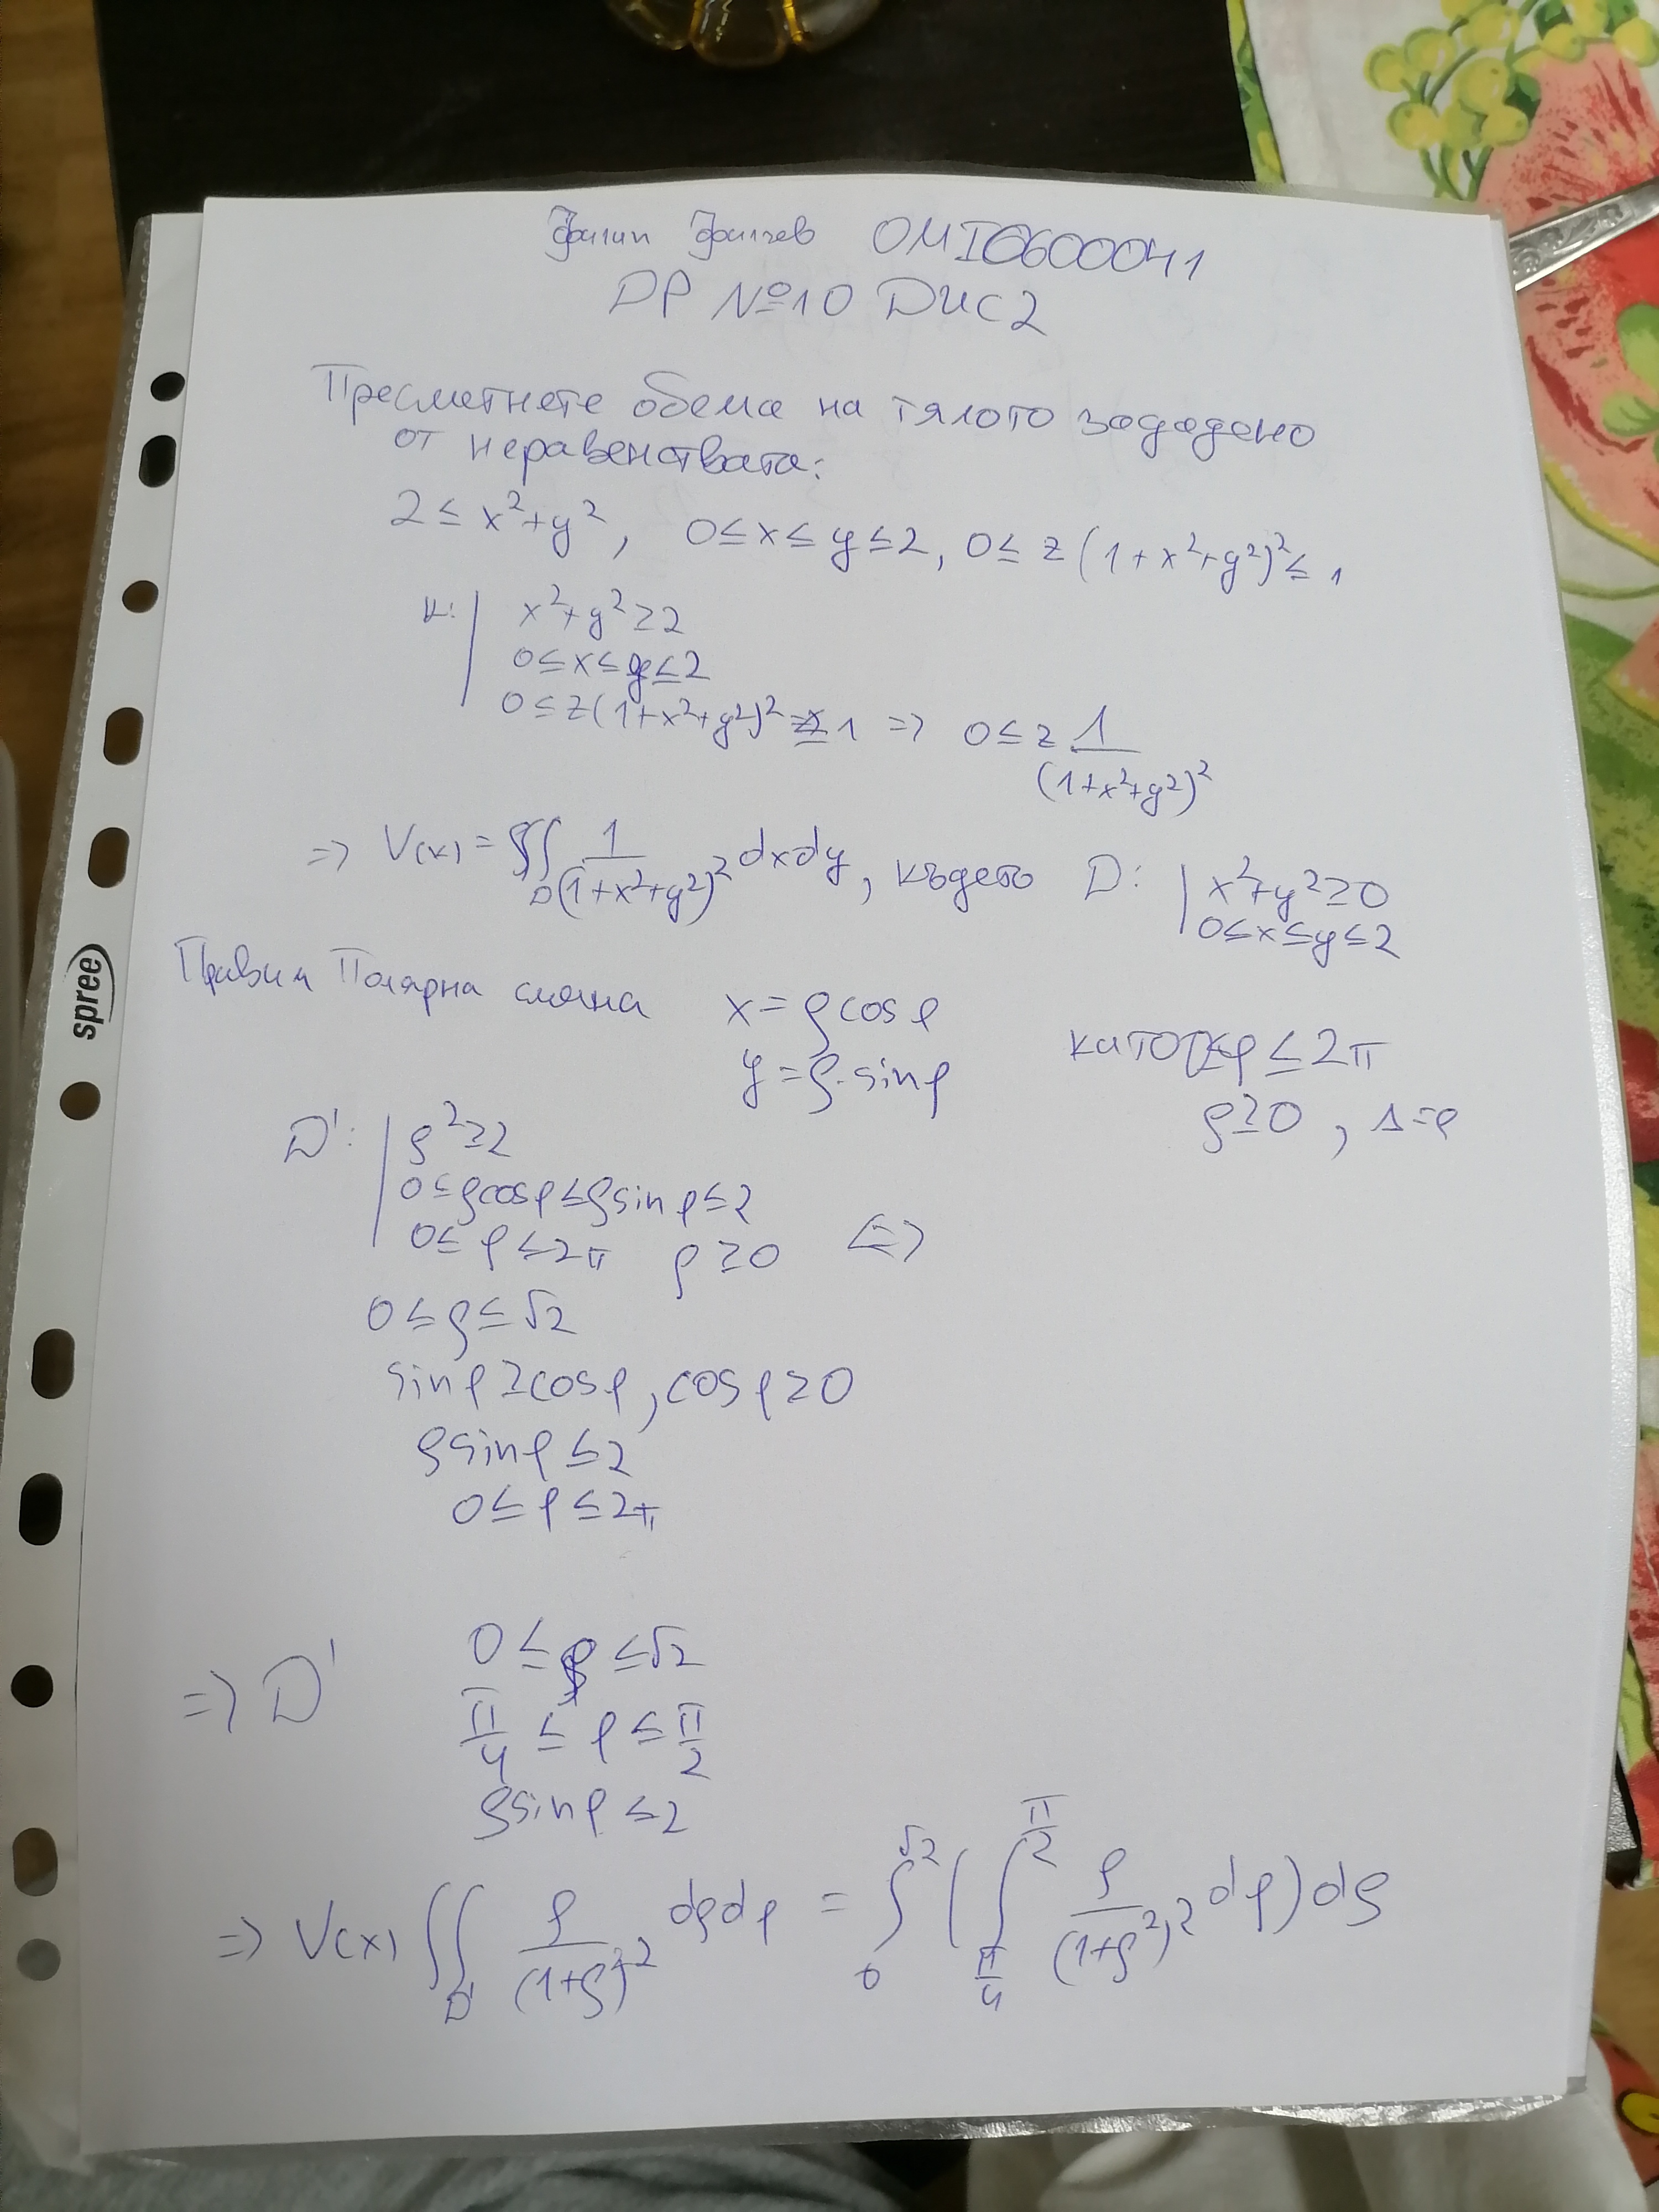 Филип Филчев 0MI0600041
ДР №10 ДИС2
Пресметнете обема на тялото зададено
от неравенствата:
2 ≤ x²+y², 0≤x≤y≤2, 0≤ z(1+x²+y²)²≤1
K: | x²+y²≥2
0≤x≤y≤2
0≤z(1+x²+y²)²≤1 => 0≤z 1/(1+x²+y²)²
=> V(x) = ∬_D 1/(1+x²+y²)² dxdy, където D: | x²+y²≥0
0≤x≤y≤2
Правим Полярна смяна x=ρcosφ
y=ρ.sinφ
като 0≤φ≤2π
ρ≥0, Δ=ρ
D': | ρ²≥2
0≤ρcosφ≤ρsinφ≤2
0≤φ≤2π ρ≥0 <=>
0≤ρ≤√2
sinφ≥cosφ, cosφ≥0
ρsinφ≤2
0≤φ≤2π
=> D' 0≤ρ≤√2
π/4 ≤ φ ≤ π/2
ρsinφ≤2
=> V(x) ∬_D' ρ/(1+ρ²)² dρdφ = ∫_0^√2 (∫_π/4^π/2 ρ/(1+ρ²)² dφ)dρ
spree